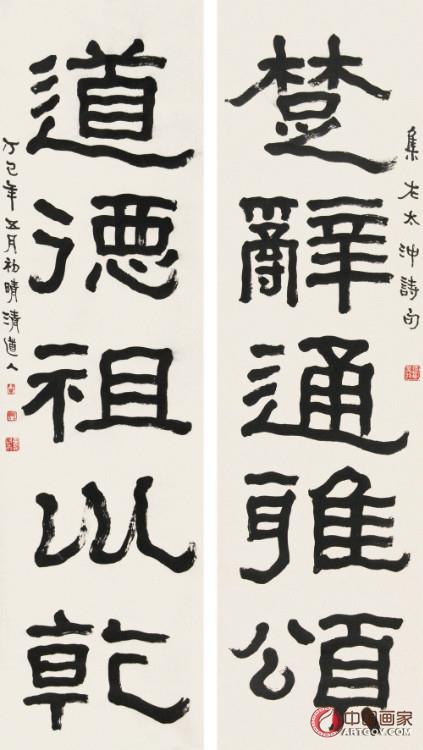 集左太沖詩句
楚辭通雅頌
道德祖巛乾
丁巳年五月初晴清道人
中国画家
ARTGOV.COM